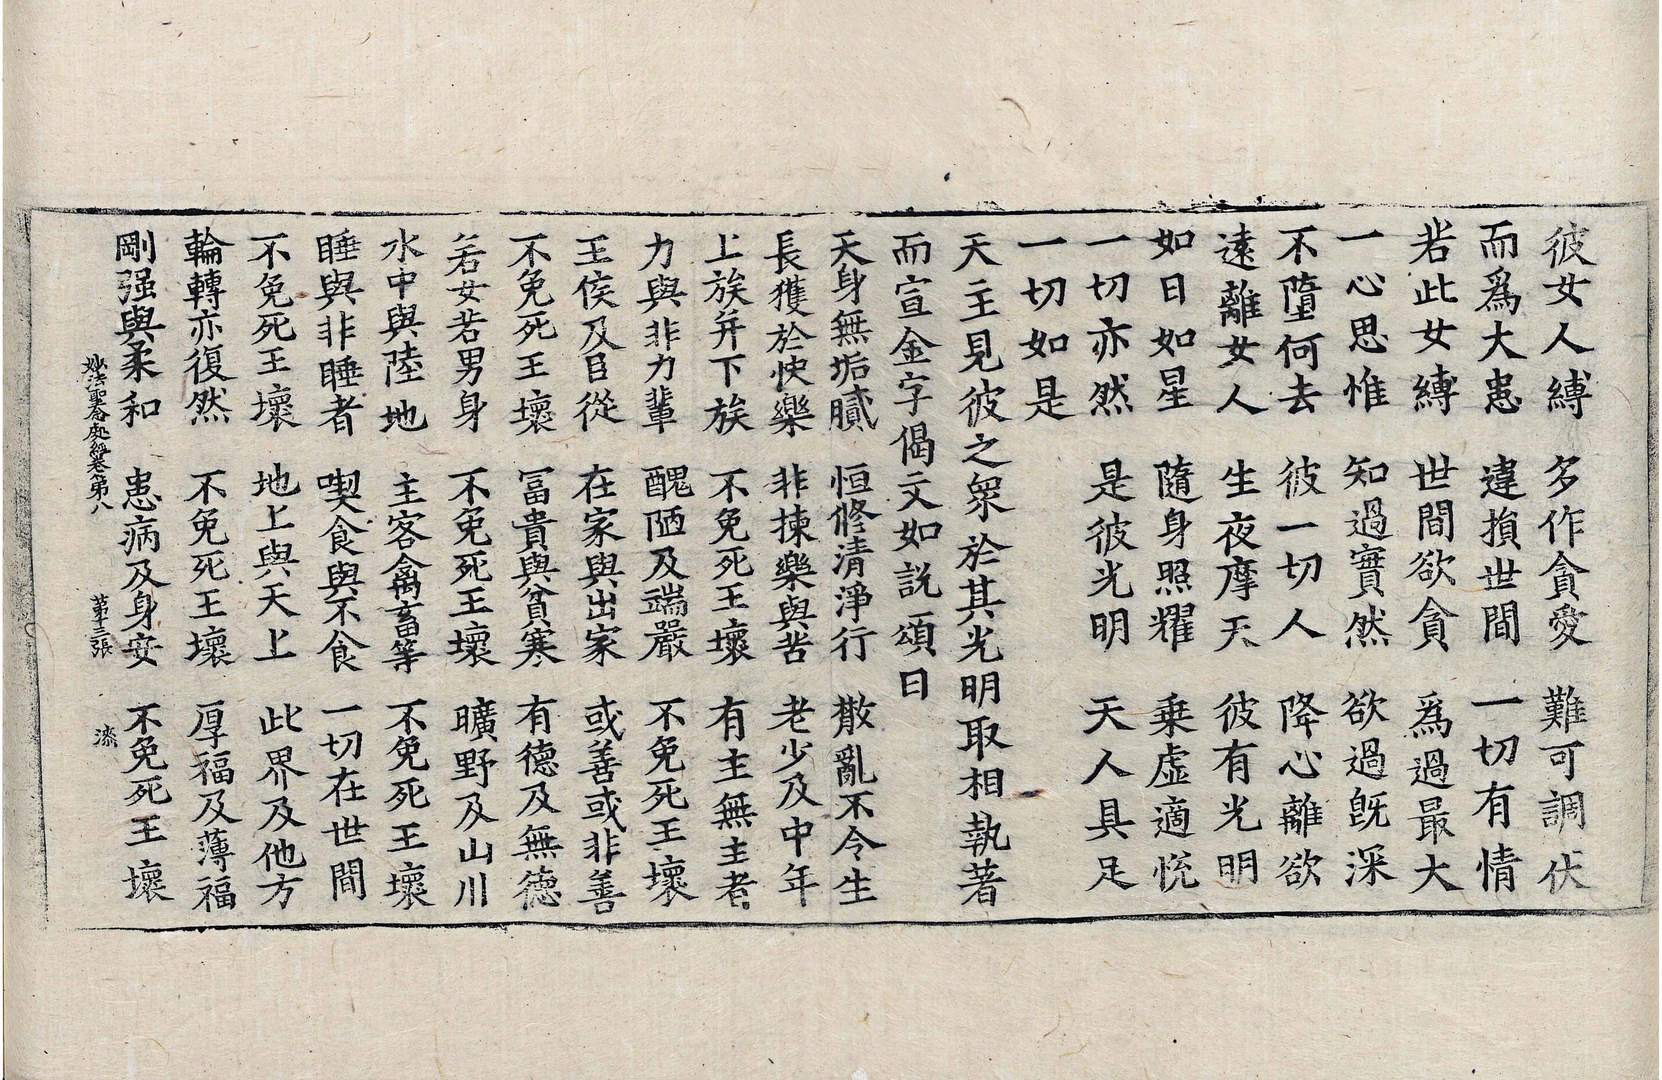 彼女人縛 多作貪愛 難可調伏
而爲大患 違損世間 一切有情
若此女縛 世間欲貪 爲過最大
一心思惟 知過實然 欲過旣深
不墮何去 彼一切人 降心離欲
遠離女人 生夜摩天 彼有光明
如日如星 隨身照耀 乗虛適悅
一切亦然 是彼光明 天人具足
一切如是
天主見彼之衆於其光明取相執著
而宣金字偈文如說頌曰
天身無垢膩 恒修清淨行 散亂不令生
長獲於快樂 非揀樂與苦 老少及中年
上族并下族 不免死王壞 有主無主者
力與非力輩 醜陋及端嚴 不免死王壞
王侯及臣從 在家與出家 或善或非善
不免死王壞 冨貴與貧寒 有德及無德
若女若男身 不免死王壞 曠野及山川
水中與陸地 主客禽畜等 不免死王壞
睡與非睡者 喫食與不食 一切在世間
不免死王壞 地上與天上 此界及他方
輪轉亦復然 不免死王壞 厚福及薄福
剛强與柔和 患病及身安 不免死王壞
妙法聖念處經卷第八 第十三張 漆